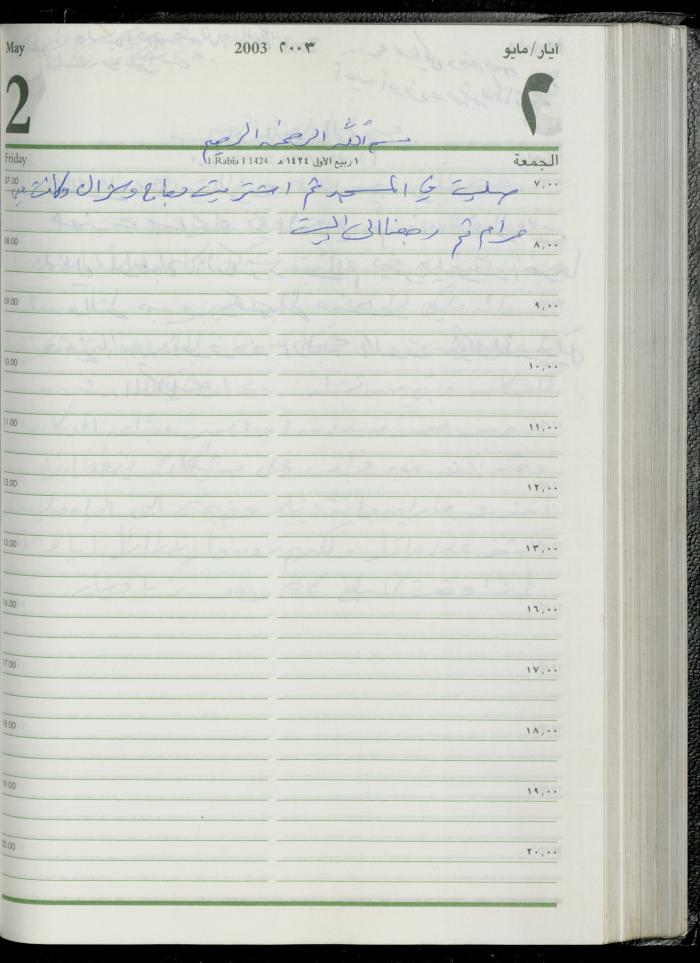 May 2003 ٢٠٠٣ أيار/مايو
2 ٢
بسم الله الرحمن الرحيم
Friday 1 Rabia I 1424 ١ ربيع الأول ١٤٢٤ هـ الجمعة
07.00 ٧,٠٠
صليت في المسجد ثم اشتريت دجاج و وكانت معي
مرام ثم رجعنا الى البيت
08.00 ٨,٠٠
09.00 ٩,٠٠
10.00 ١٠,٠٠
11.00 ١١,٠٠
12.00 ١٢,٠٠
13.00 ١٣,٠٠
16.00 ١٦,٠٠
17.00 ١٧,٠٠
18.00 ١٨,٠٠
19.00 ١٩,٠٠
20.00 ٢٠,٠٠